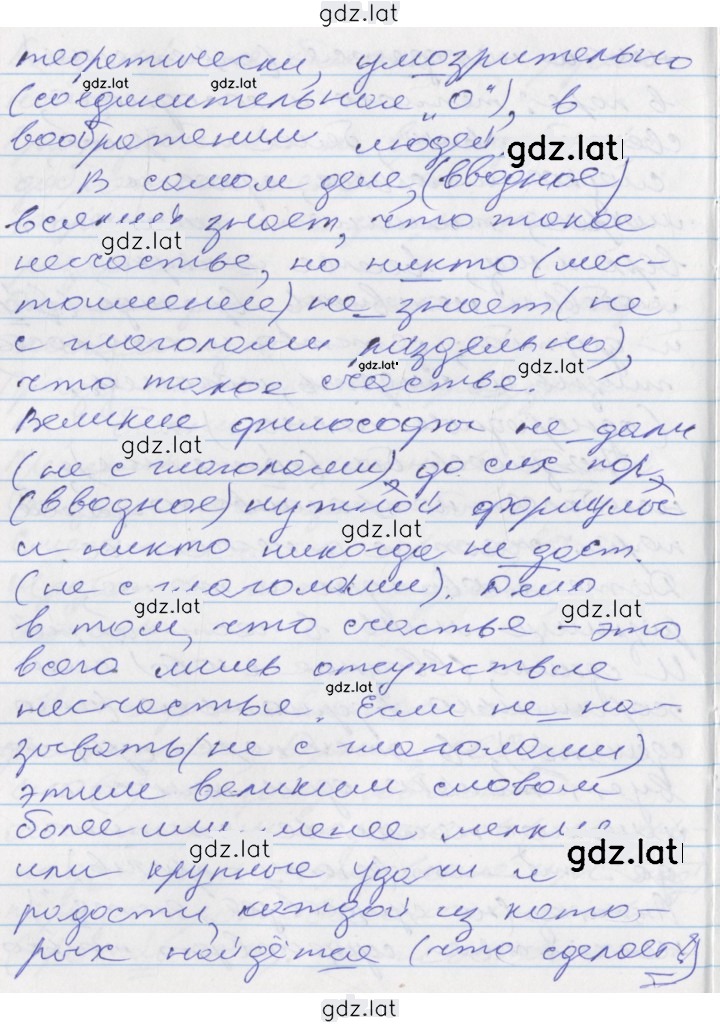 gdz.lat
теоретически, умозрительно
gdz.lat gdz.lat
(соединительная "О"), в
воображении людей
gdz.lat
В самом деле, (вводное)
всякий знает, что такое
gdz.lat
несчастье, но никто (мес-
тоимение) не знает (не
с глаголами раздельно),
gdz.lat gdz.lat
что такое счастье.
Великие философы не дали
gdz.lat
(не с глаголами) до сих пор
(вводное) нужной формулы
gdz.lat
и никто никогда не даст.
(не с глаголами). Дело
gdz.lat gdz.lat
в том, что счастье - это
всего лишь отсутствие
gdz.lat
несчастья. Если не на-
зывать (не с глаголами)
этим великим словом
более или менее мелкие
gdz.lat gdz.lat
или крупные удачи и
радости, каждой из кото-
рых найдётся (что сделает?)
gdz.lat